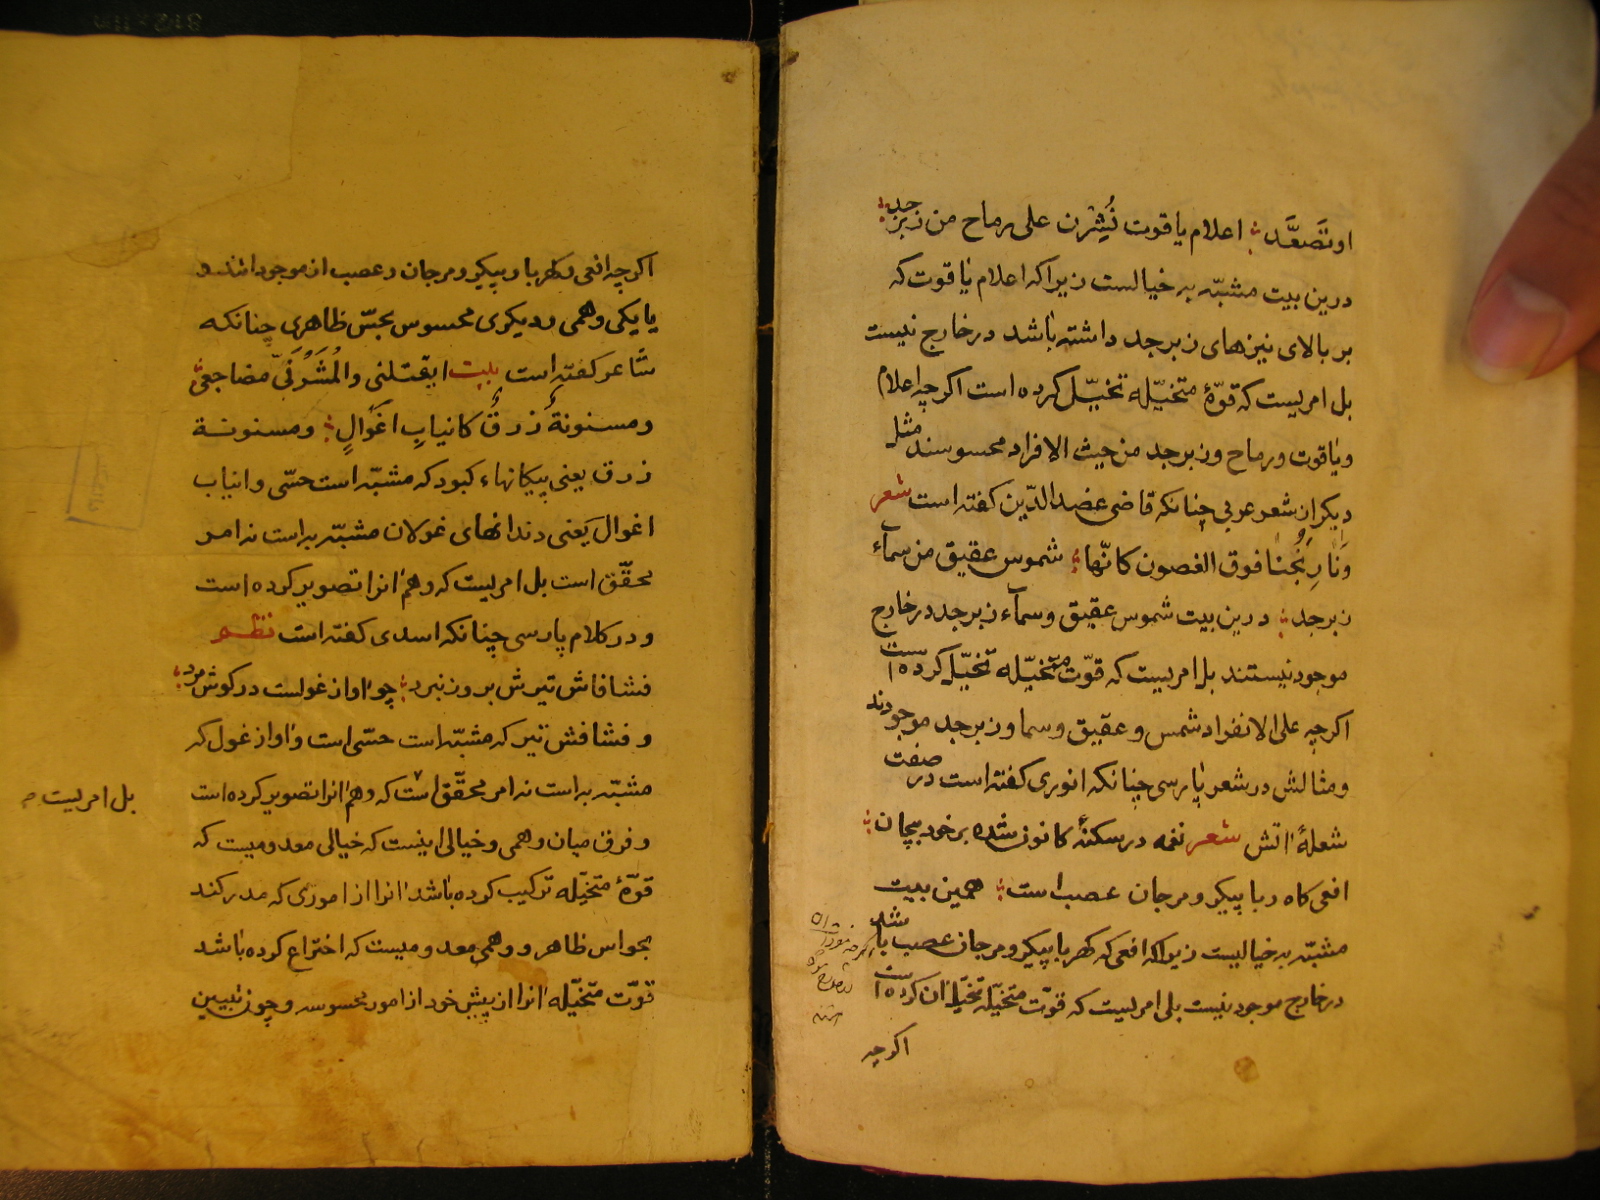 او تصعّد ؛ اعلام ياقوت نُشِرْن على رماح من زبرجد ؛
درين بيت مشبّه به خياليست زيراكه اعلام ياقوت كه
بر بالاى نيزهاى زبرجد داشته باشد در خارج نيست
بل امريست كه قوّهٔ متخيّله تخيّل كرده است اكرچه اعلام
و ياقوت و رماح و زبرجد من حيث الافراد محسوسند مثل
ديكر از شعر عربى چنانكه قاضى عضد الدّين كفته است شعر
وَنَارِنْجُنا فوق الغصون كانّها ؛ شموس عقيق من سمآء
زبرجد ؛ درين بيت شموس عقيق و سمآء زبرجد در خارج
موجود نيستند بل امريست كه قوّت متخيّله تخيّل كرده است
اكرچه على الانفراد شمس و عقيق و سما و زبرجد موجودند
و مثالش در شعر پارسى چنانكه انورى كفته است در صفت
شعلهٔ اتش شعر نغمه در سكنهٔ كانون شده بر خود پيچان ؛
افعى كاه ربا پيكر و مرجان عصب است ؛ همين بيت
مشبّه به خياليست زيراكه افعى كه كهربا پيكر و مرجان عصب باشد
در خارج موجود نيست بلى امريست كه قوّت متخيّله تخيّل ان كرده است
اكرچه
اكرچه افعى و كهربا و پيكر و مرجان و عصب از موجوداتند و
يا يكى وهمى و ديكرى محسوس بحسّ ظاهرى چنانكه
شاعر كفته است بيت ايقتلنى والمُشَرَفِىّ مضاجعى ؛
ومسنونةٌ زرقٌ كانيابِ اغوالٍ ؛ ومسنونة
زرق يعنى پيكانهاء كبود كه مشبّه است حسّى و انياب
اغوال يعنى دندانهاى غولان مشبّه به است نه امر
محقّق است بل امريست كه وهم انرا تصوير كرده است
و در كلام پارسى چنانكه اسدى كفته است نظم
فشافاش تيرش بروز نبرد ؛ چو اواز غولست در كوش مرد ؛
و فشافش تير كه مشبّه است حسّى است و اواز غول كه
مشبّه به است نه امر محقّق است كه وهم انرا تصوير كرده است
بل امريست
و فرق ميان وهمى و خيالى اينست كه خيالى معدوميست كه
قوّهٔ متخيّله تركيب كرده باشد انرا از امورى كه مدركند
بحواس ظاهر و وهمى معدوميست كه اختراع كرده باشد
قوّت متخيّله انرا از پيش خود از امور محسوسه و چون تبيين